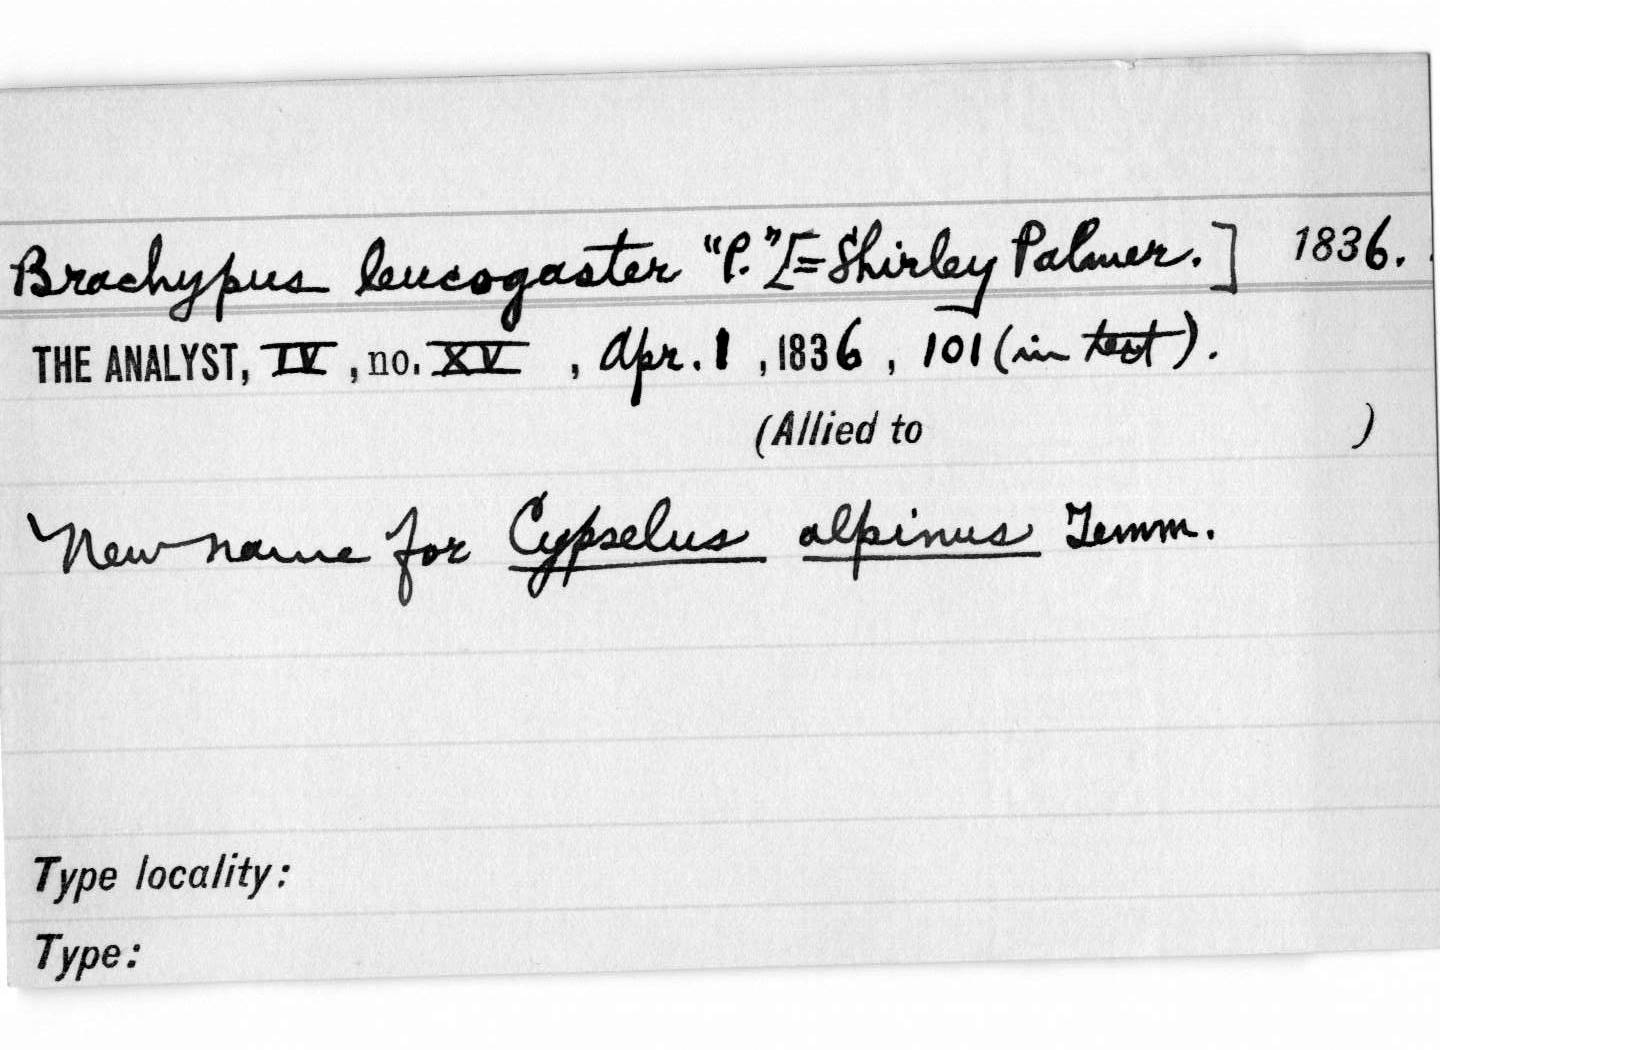 Brachypus leucogaster "P." [=Shirley Palmer.] 1836.
THE ANALYST, IV, no. XV, Apr. 1, 1836, 101 (in text).
(Allied to )
New name for Cypselus alpinus Temm.
Type locality:
Type: